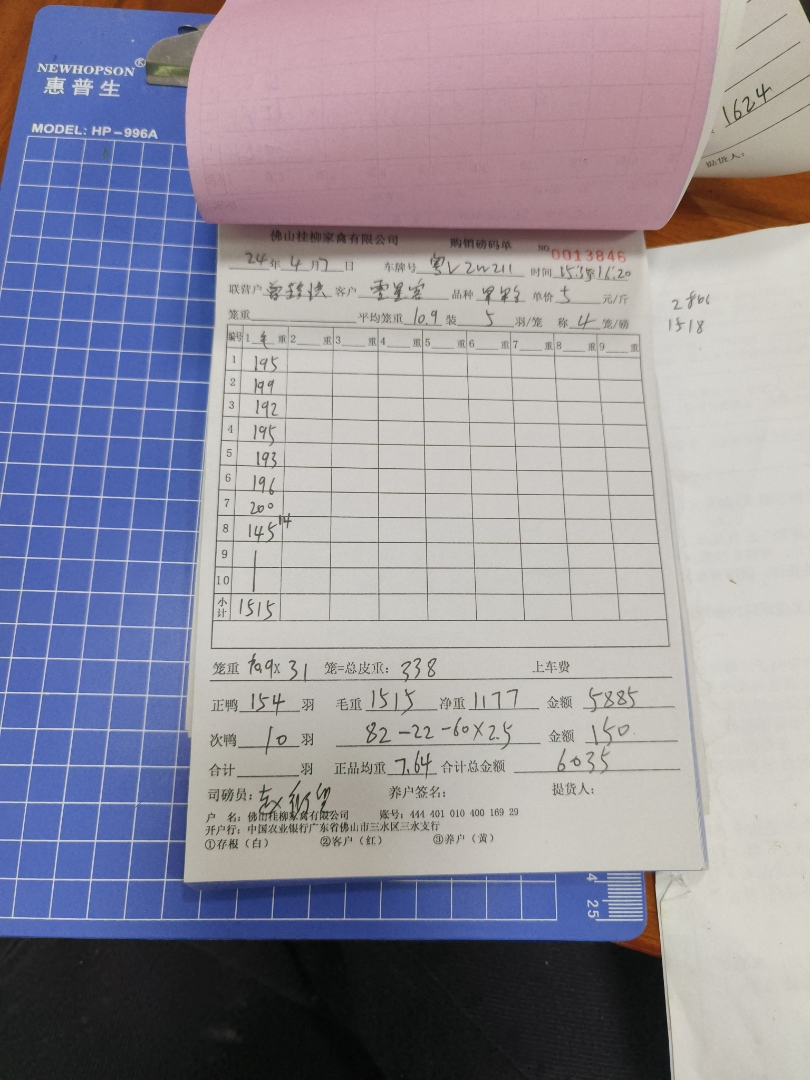 NEWHOPSON®
惠普生
MODEL: HP-996A
1624
提货人:
佛山桂柳家禽有限公司 购销磅码单 NO 0013846
24年4月7日 车牌号 粤V2W211 时间 16:20
联营户 客户 零星客 品种 单价 5 元/斤
笼重 平均笼重 10.9 装 5 羽/笼 称 4 笼/磅
编号 1 毛 重 2 重 3 重 4 重 5 重 6 重 7 重 8 重 9 重
1 195
2 199
3 192
4 195
5 193
6 196
7 200
8 145 14
9
10
小计 1515
笼重 10.9X 31 笼=总皮重: 338 上车费
正鸭 154 羽 毛重 1515 净重 1177 金额 5885
次鸭 10 羽 82-22-60X2.5 金额 150
合计 羽 正品均重 7.64 合计总金额 6035
司磅员: 养户签名: 提货人:
户 名: 佛山桂柳家禽有限公司 账号: 444 401 010 400 169 29
开户行: 中国农业银行广东省佛山市三水区三水支行
①存根（白） ②客户（红） ③养户（黄）
1518
4
25